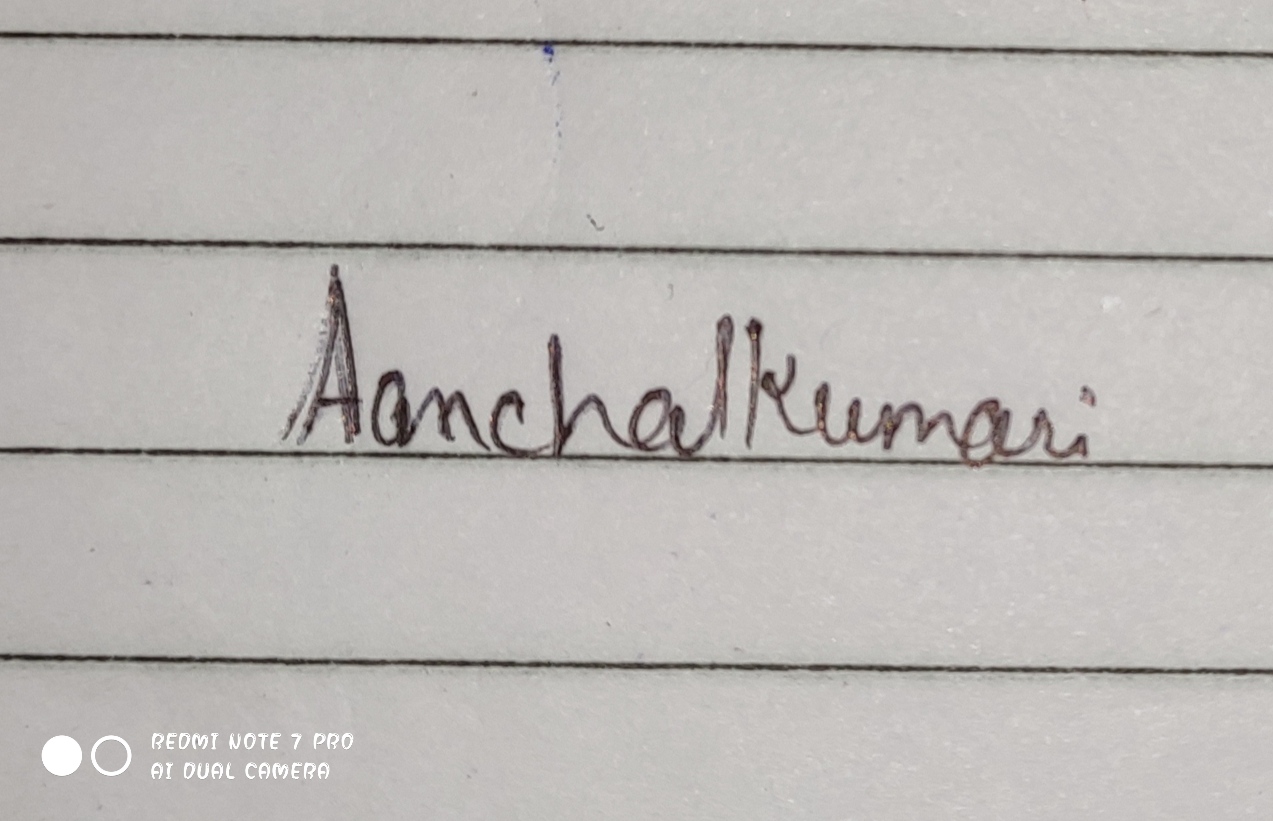 Aanchal Kumari
REDMI NOTE 7 PRO
AI DUAL CAMERA